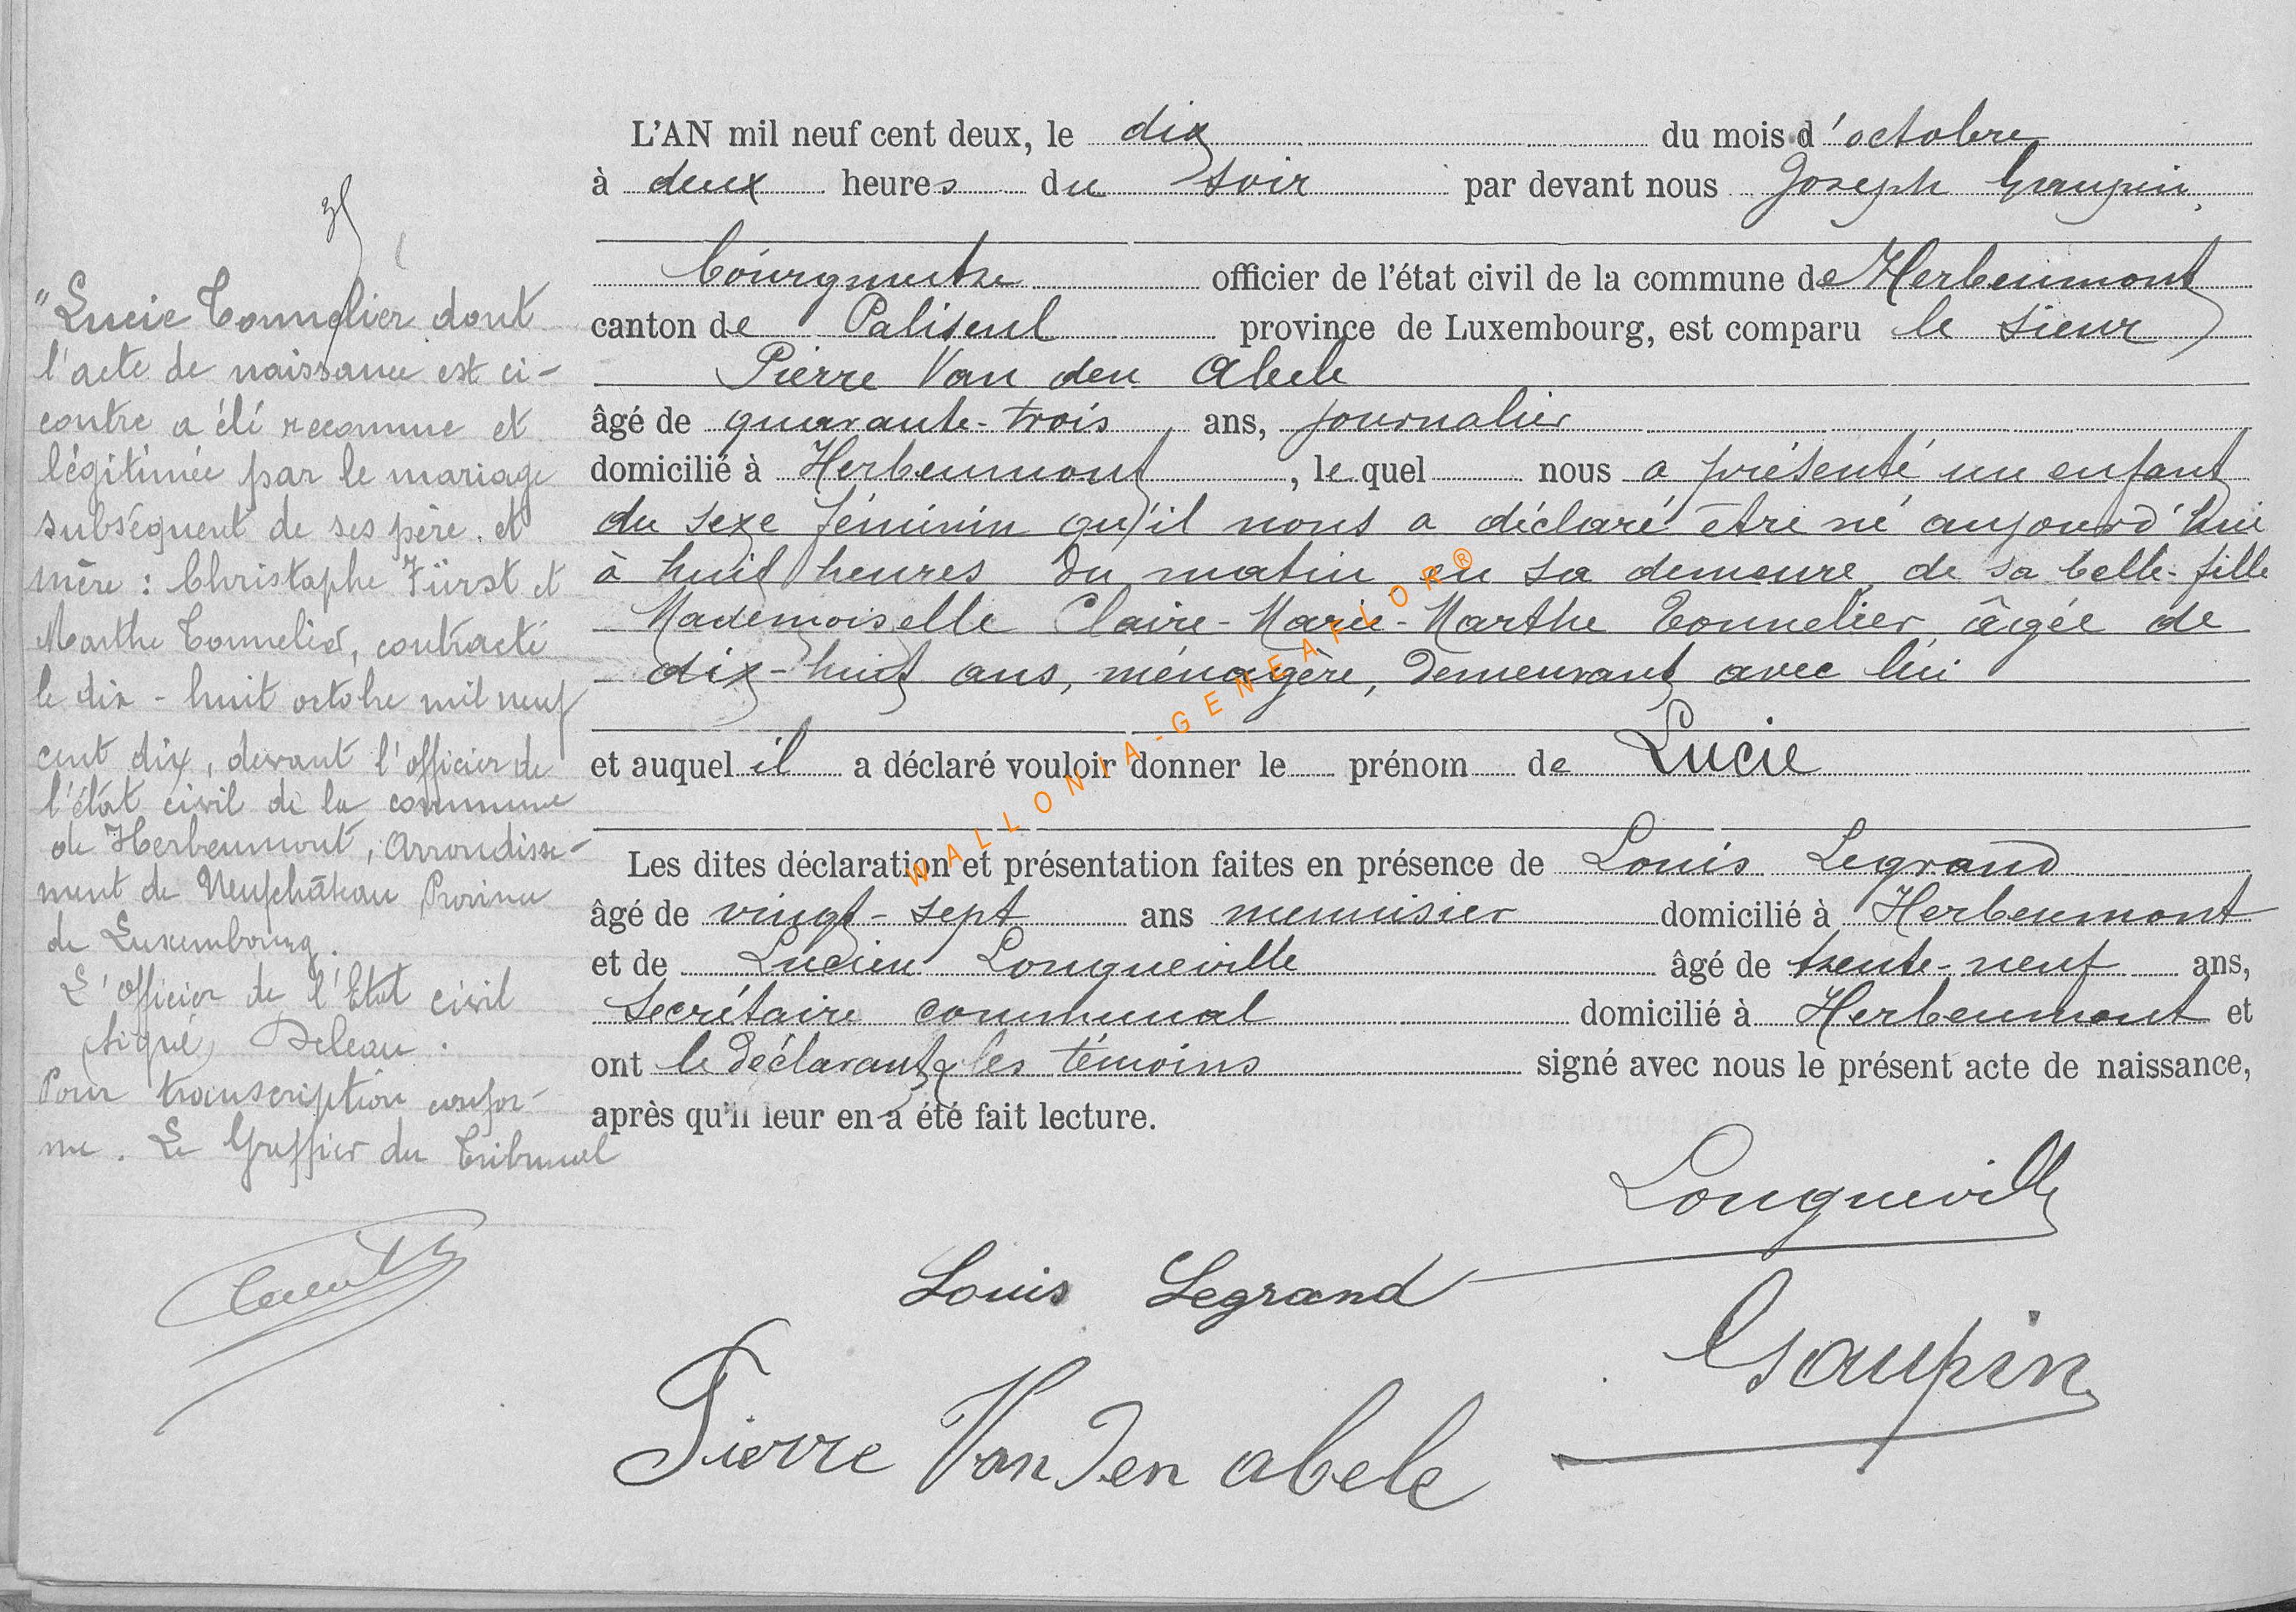 "Lucie Tonnelier dont
l'acte de naissance est ci-
contre a été reconnue et
légitimée par le mariage
subséquent de ses père et
mère : Christophe Fürst et
Marthe Tonnelier, contracté
le dix-huit octobre mil neuf
cent dix, devant l'officier de
l'état civil de la commune
de Herbeumont, Arrondisse-
ment de Neufchâteau Province
de Luxembourg.
L'officier de l'Etat civil
(signé) Deleau.
Pour transcription confor-
me. Le Greffier du Tribunal
L'AN mil neuf cent deux, le dix du mois d'octobre
à deux heures du soir par devant nous Joseph Graupin,
bourgmestre officier de l'état civil de la commune de Herbeumont
canton de Paliseul province de Luxembourg, est comparu le sieur
Pierre Van den Abeele
âgé de quarante-trois ans, journalier
domicilié à Herbeumont, lequel nous a présenté un enfant
du sexe féminin qu'il nous a déclaré être né aujourd'hui
à huit heures du matin en sa demeure, de sa belle-fille
Mademoiselle Claire-Marie-Marthe Tonnelier, âgée de
dix-huit ans, ménagère, demeurant avec lui
et auquel il a déclaré vouloir donner le prénom de Lucie
Les dites déclaration et présentation faites en présence de Louis Legrand
âgé de vingt-sept ans menuisier domicilié à Herbeumont
et de Lucien Longueville âgé de trente-neuf ans,
secrétaire communal domicilié à Herbeumont et
ont le déclarant & les témoins signé avec nous le présent acte de naissance,
après qu'il leur en a été fait lecture.
Longueville
Louis Legrand
Graupin
Pierre Van Den abele
WALLONIA-GENEAFLOR®